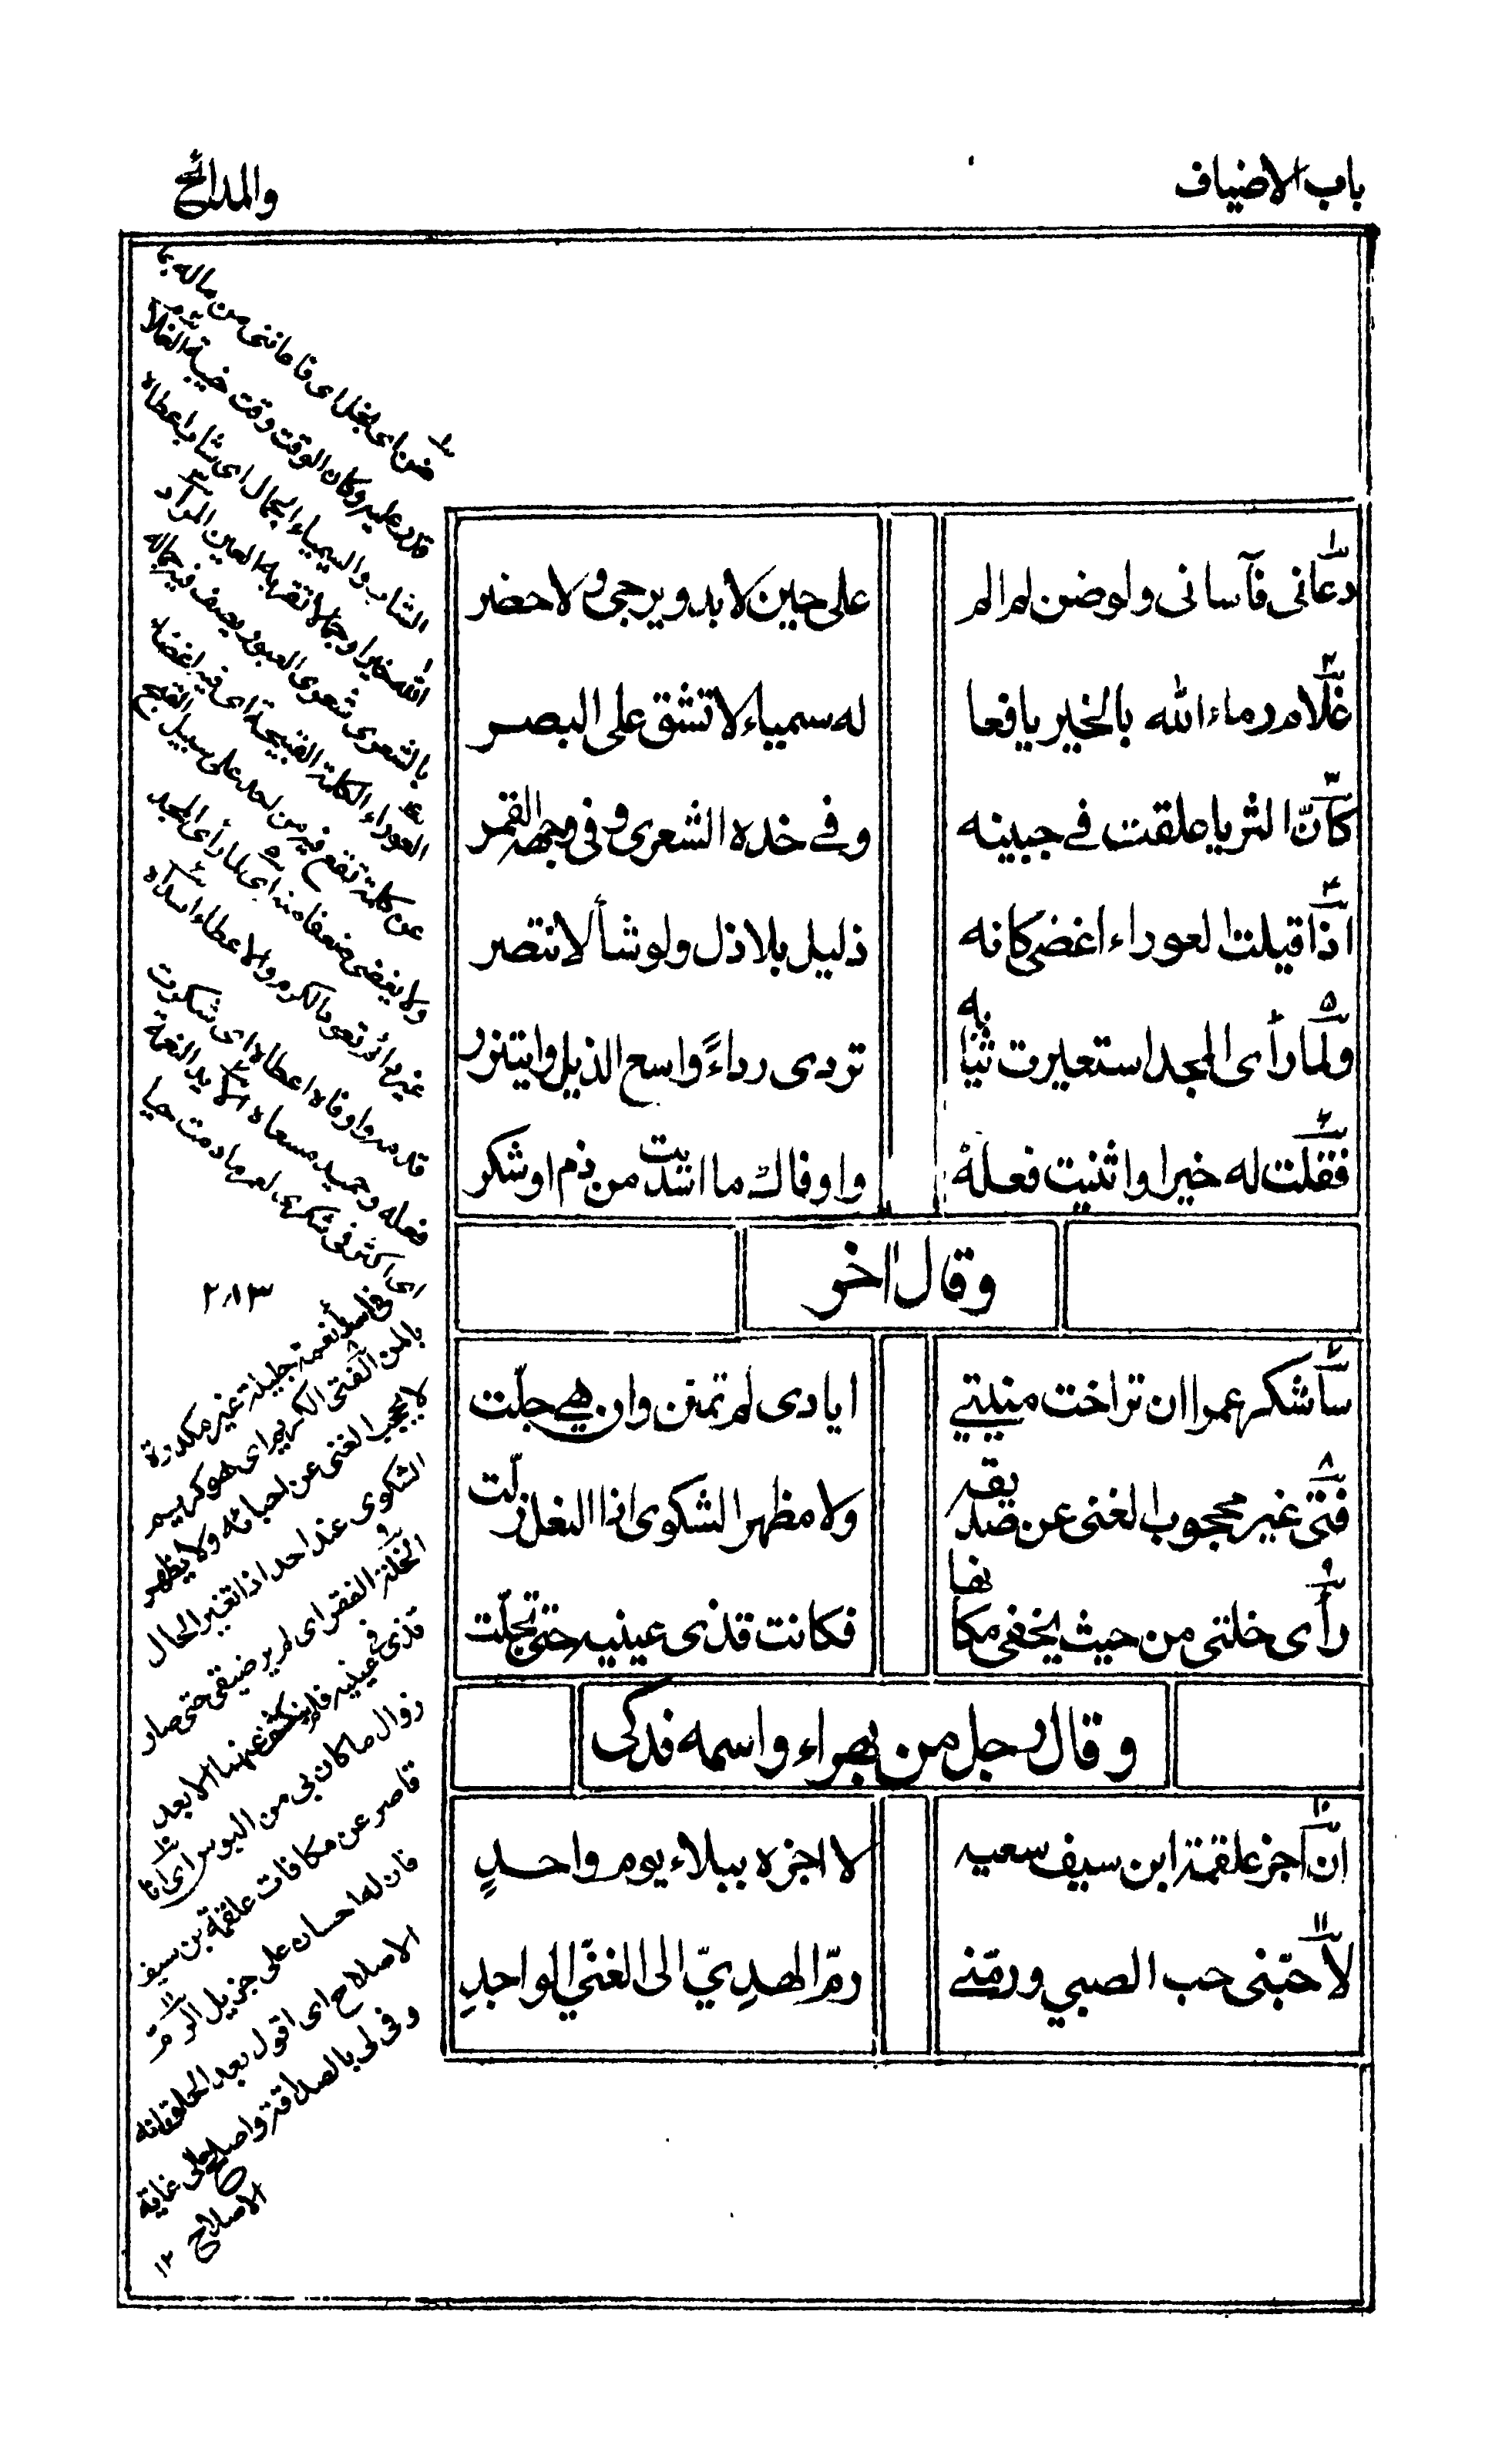 باب الاضياف
والمدائح
دعانى فآسانى ولو ضن لم الم
على حين لا بدو يرجى ولا حضر
غلام رماه الله بالخير يافعا
له سمياء لا تشق على البصر
كأنّ الثريا علقت في جبينه
وفي خده الشعرى وفى وجهه القمر
اذا قيلت العوراء اغضى كانه
ذليل بلا ذل ولو شأ لانتصر
ولما رأى المجد استعيرت ثيابه
تردى رداءً واسع الذيل وايتزر
فقلت له خيرا واثنيت فعله
واوفاك ما اسديت من ذم او شكر
وقال اخر
سأشكر عمرا ان تراخت منيتي
ايادى لم تمنن وان هي جلّت
فتى غير محجوب الغنى عن صديقه
ولا مظهر الشكوى اذا النعل زلّت
رأى خلتى من حيث يخفى مكانها
فكانت قذى عينيه حتى تجلّت
وقال رجل من بهراء واسمه فدكى
ان اجز علقمة ابن سيف سعيه
لا اجزه ببلاء يوم واحدٍ
لأحبّنى حب الصبي ورمّنے
رمّ الهدِيّ الى الغنّي الواجدِ
ضن اى بخل اى فآسانى من ماله بما
قدر عليه وكان الوقت وقت خيبة
الشاب والسيمياء الجمال اى شاب اعطاه
الله خيرا وجمالا تقر به العين المراد
بالشعرى شعرى العبور يصف فيه جماله
العوراء الكلمة القبيحة اى فيه اغضاء
عن كلمة تقع فيه من احد على سبيل القبح
ولا يغضى ضعفا منه اى لما رأى المجد
فعله وحميد مسعاه الايد النعمة
اى اكثر فى شكرى لعمر ما دمت حيا
٢٨٣
نعمة جليلة غير مكدرة
بالمن الفتى الكريم اى هو كريم
لا يحجب الغنى عن احبائه ولا يظهر
الشكوى عند احد اذا تغير الحال
الخلة الفقر اى لم ير ضيقى حتى صار
قذى فى عينيه فلم ينكشف عنهما الا بعد
زوال ما كان بى من البوس اى انا
قاصر عن مكافات علقمة بن سيف
فان له احسان على جزيل الرم
الاصلاح اى اقول بعد الحلف انه
وفى لى بالصداقة واصلح لى غاية
الاصلاح
١٢